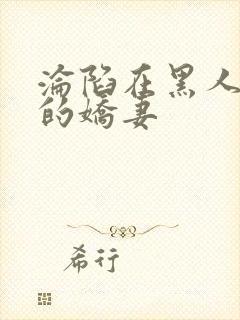 淪陷在黑人
的嬌妻
希行